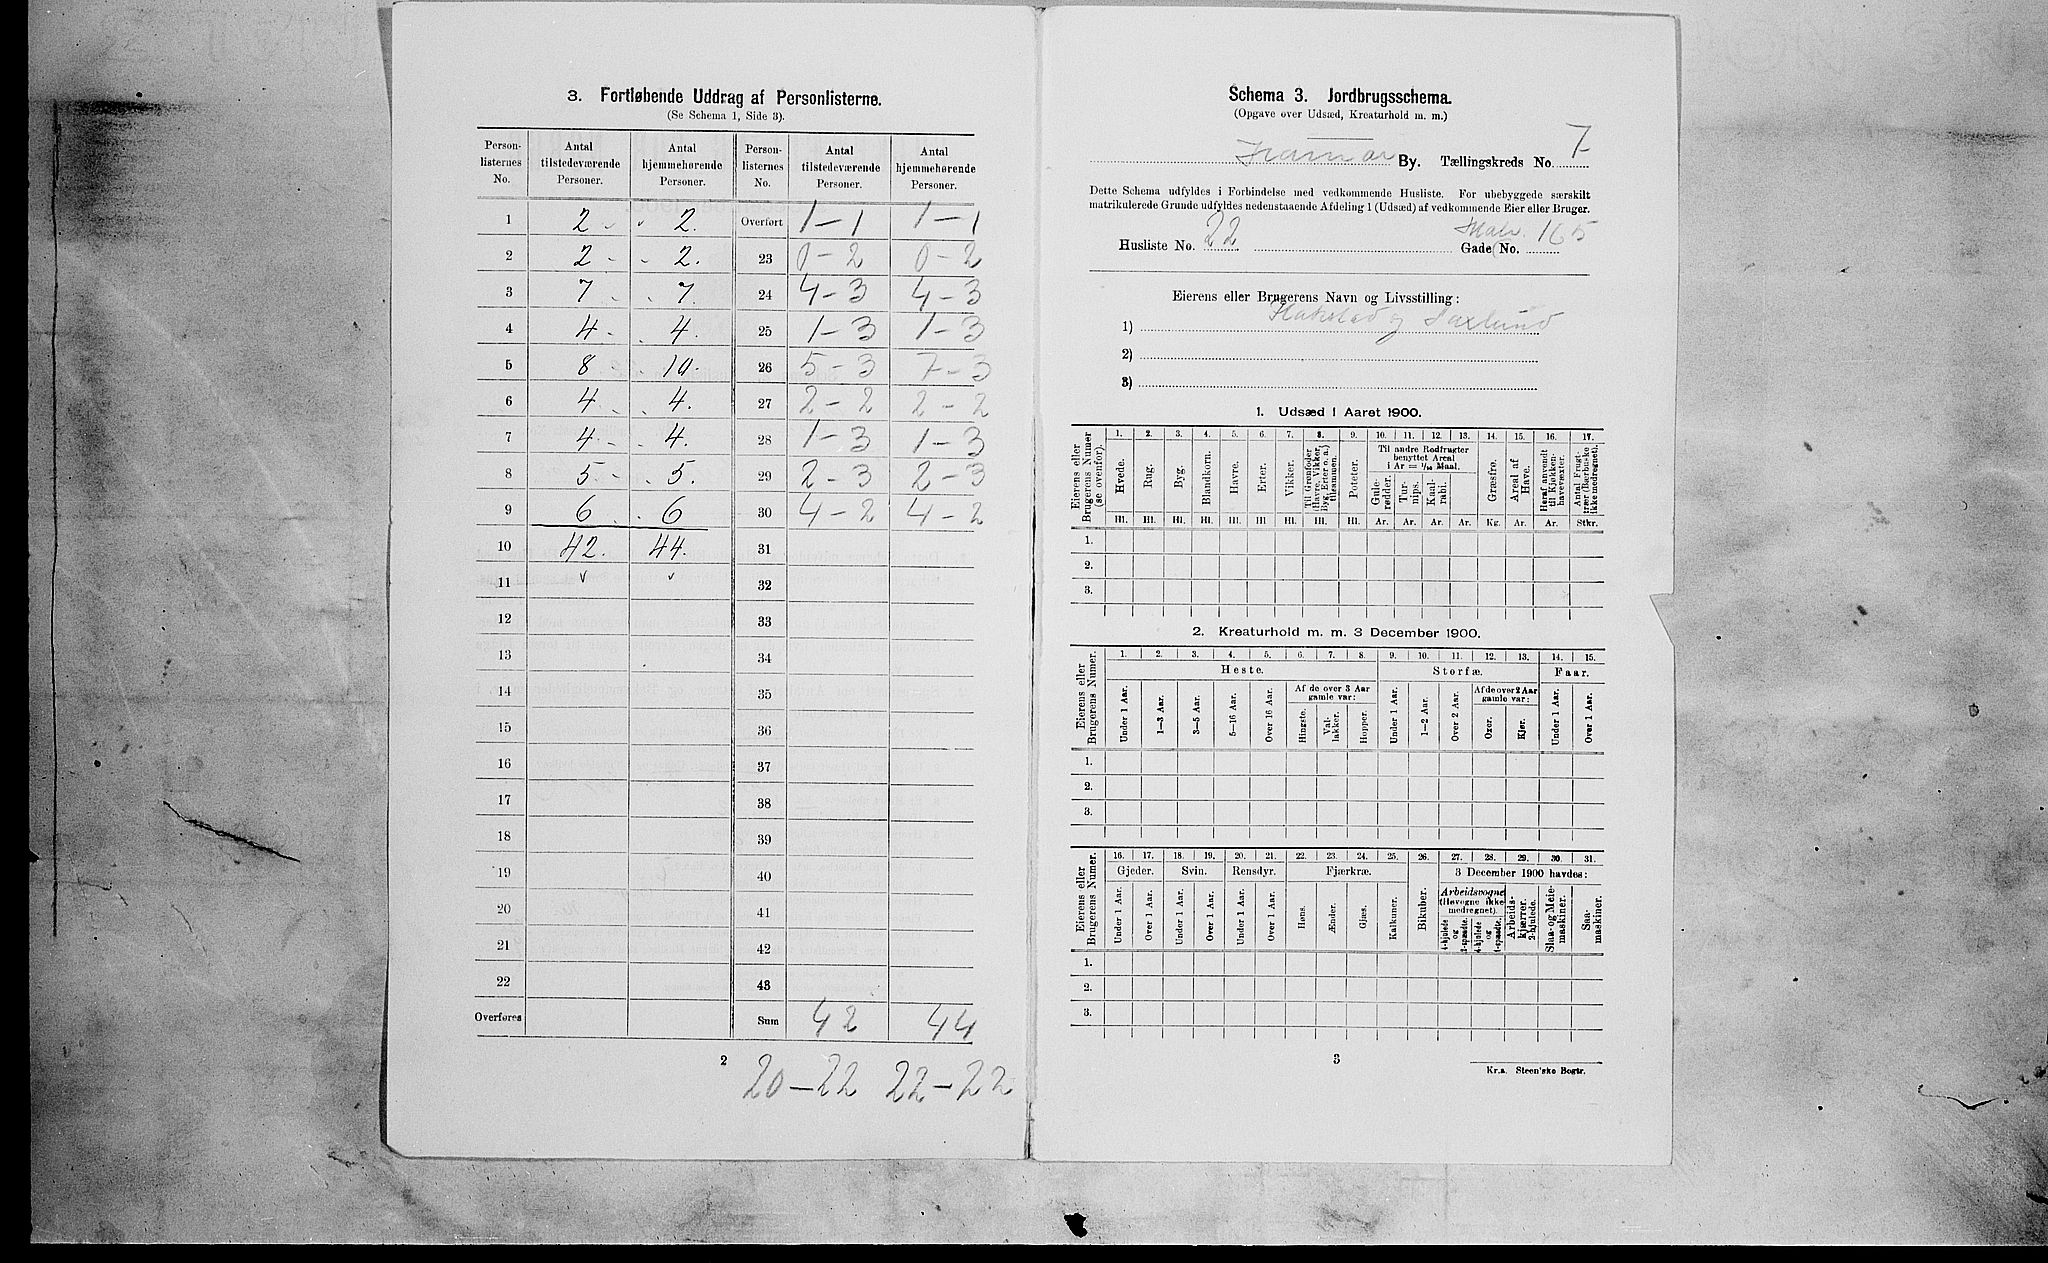 3. Fortløbende Uddrag af Personlisterne.
(Se Schema 1, Side 3).
Person-listernes No. Antal tilstedeværende Personer. Antal hjemmehørende Personer. Person-listernes No. Antal tilstedeværende Personer. Antal hjemmehørende Personer.
1 2 2. Overført 1-1 1-1
2 2 2. 23 0-2 0-2
3 7 7. 24 4-3 4-3
4 4 4. 25 1-3 1-3
5 8 10. 26 5-3 7-3
6 4 4. 27 2-2 2-2
7 4 4. 28 1-3 1-3
8 5 5. 29 2-3 2-3
9 6 6 30 4-2 4-2
10 42. 44. 31
11 v v 32
12 33
13 34
14 35
15 36
16 37
17 38
18 39
19 40
20 41
21 42
22 43
Overføres Sum 42 44
2
20-22 22-22
Schema 3. Jordbrugsschema.
(Opgave over Udsæd, Kreaturhold m. m.)
Hamar By. Tællingskreds No. 7
Dette Schema udfyldes i Forbindelse med vedkommende Husliste. For ubebyggede særskilt
matrikulerede Grunde udfyldes nedenstaaende Afdeling 1 (Udsæd) af vedkommende Eier eller Bruger.
Husliste No. 22 Gade (No. Matr. 165
Eierens eller Brugerens Navn og Livsstilling:
1) og
2)
3)
1. Udsæd i Aaret 1900.
Eierens eller Brugerens Numer (se ovenfor).
1. 2. 3. 4. 5. 6. 7. 8. 9. 10. 11. 12. 13. 14. 15. 16. 17.
Hvede. Rug. Byg. Blandkorn. Havre. Erter. Vikker. Til Grønfoder (Havre, Vikker, Byg, Erter o. a.) tilsammen. Poteter. Til andre Rodfrugter benyttet Areal i Ar = 1/10 Maal. Gule-rødder. Tur-nips. Kaal-rabi. Græsfrø. Areal af Have. Heraf anvendt til Kjøkken-havevexter. Antal Frugt-træer (Bærbuske ikke medregnet).
Hl. Hl. Hl. Hl. Hl. Hl. Hl. Hl. Hl. Ar. Ar. Ar. Ar. Kg. Ar. Ar. Stkr.
1.
2.
3.
2. Kreaturhold m. m. 3 December 1900.
Eierens eller Brugerens Numer.
1. 2. 3. 4. 5. 6. 7. 8. 9. 10. 11. 12. 13. 14. 15.
Heste. Storfæ. Faar.
Under 1 Aar. 1—3 Aar. 3—5 Aar. 5—16 Aar. Over 16 Aar. Af de over 3 Aar gamle var: Hingste. Val-lakker. Hopper. Under 1 Aar. 1—2 Aar. Over 2 Aar. Af de over 2 Aar gamle var: Oxer. Kjør. Under 1 Aar. Over 1 Aar.
1.
2.
3.
Eierens eller Brugerens Numer.
16. 17. 18. 19. 20. 21. 22. 23. 24. 25. 26. 27. 28. 29. 30. 31.
Gjeder. Svin. Rensdyr. Fjærkræ. Bikuber. 3 December 1900 havdes:
Under 1 Aar. Over 1 Aar. Under 1 Aar. Over 1 Aar. Under 1 Aar. Over 1 Aar. Høns. Ænder. Gjæs. Kalkuner. Arbeidsvogne (Høvogne ikke medregnet). 4-hjulede og 2-spændte. 4-hjulede og 1-spændte. Arbeids-kjærrer, 2-hjulede. Slaa- og Meie-maskiner. Saa-maskiner.
1.
2.
3.
3
Kr.a. Steen'ske Bogtr.